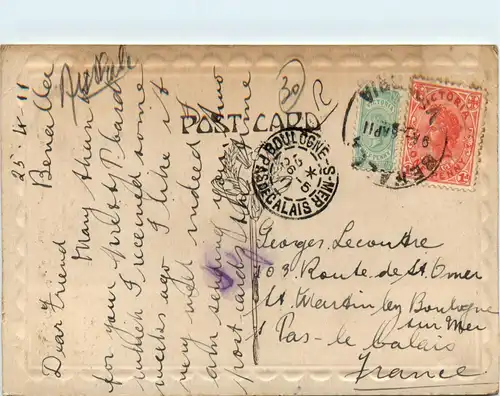 Australie
30
R
25.4.11
Benalla
Dear Friend
Many thanks
for your pretty P. card
which I received some
weeks ago. I like it
very much indeed I
am sending you two
post cards this time
POST CARD
BOULOGNE-S-MER
PAS DE CALAIS
VICTORIA
VICTORIA
ONE PENNY
BENALLA
Georges Lecoutre
103 Route de St. Omer
St. Martin les Boulogne
sur Mer
Pas-le Calais
France